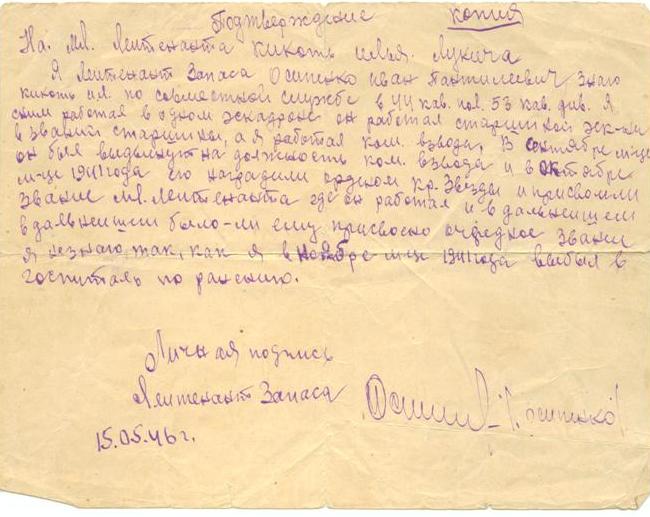 Подтверждение копия
На. мл. Лейтенанта кикоть илья. Лукича
Я Лейтенант Запаса Осипенко иван Пантилеевич знаю
кикоть ил. по совместной службе в 44 кав. пол. 53 кав. див. Я
сним работал в одном эскадроне он работал старшиной эск-на
в звании старшины, а я работал ком. взвода, В сентябре м-це
он был выдвинут на должность ком. взвода и в октябре
м-це 1941 года его наградили орденом кр. Звезды и присвоили
звание мл. лейтенанта где он работал и в дальнейшем
в дальнейшем было-ли ему присвоено очередное звание
я незнаю, так, как я в ноябре м-це 1941 года выбыл в
госпиталь по ранению.
Личная подпись
Лейтенант Запаса Осипенко
15.05.46 г.